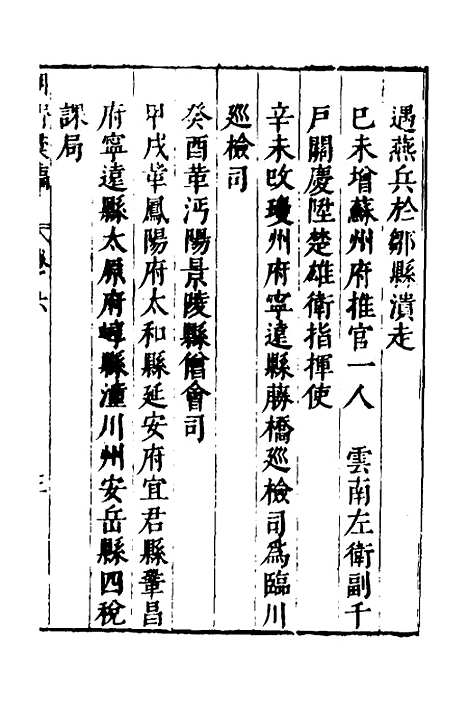 遇燕兵於鄒縣潰走
己未增蘇州府推官一人　雲南左衛副千
戶關慶陞楚雄衛指揮使
辛未改瓊州府寧遠縣藤橋巡檢司為臨川
巡檢司
癸酉革沔陽景陵縣僧會司
甲戌革鳳陽府太和縣延安府宜君縣鞏昌
府寧遠縣太原府崞縣潼川州安岳縣四稅
課局
卷六
三